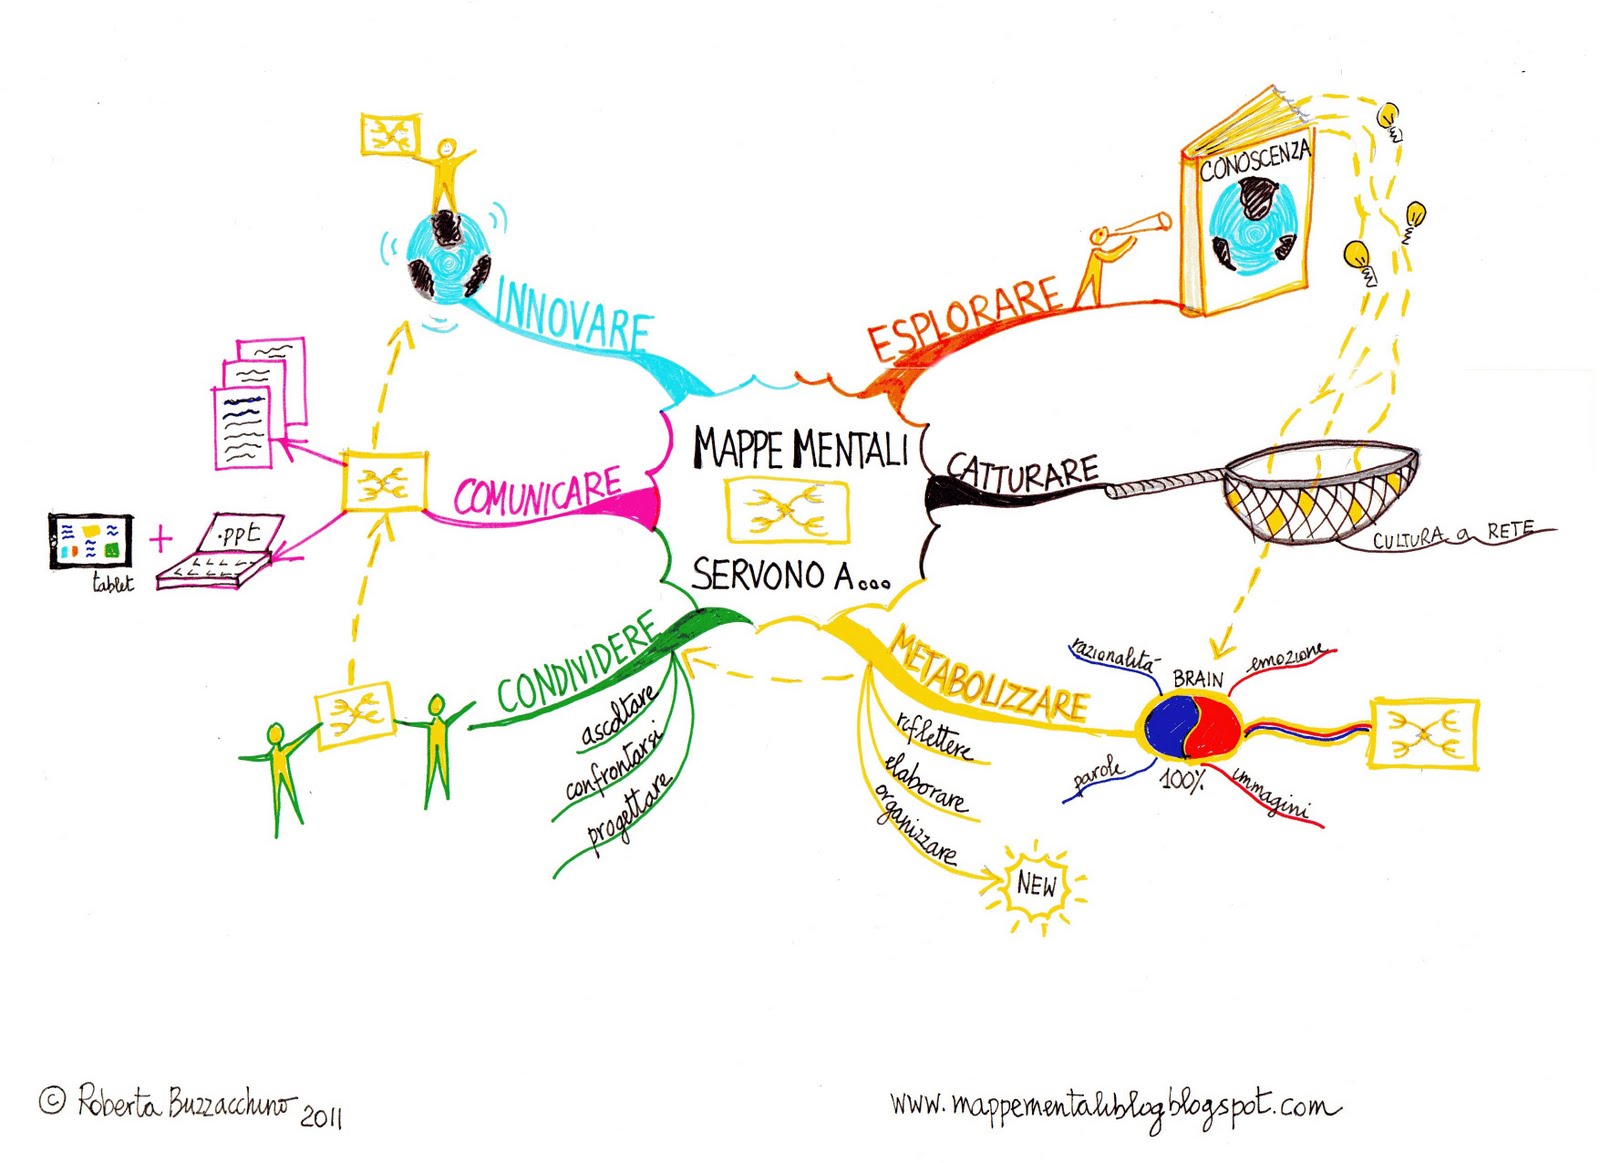 MAPPE MENTALI
SERVONO A...
ESPLORARE
CONOSCENZA
CATTURARE
CULTURA a RETE
METABOLIZZARE
riflettere
elaborare
organizzare
NEW
BRAIN
100%
razionalità
emozione
parole
immagini
CONDIVIDERE
ascoltare
confrontarsi
progettare
COMUNICARE
.ppt
+
tablet
INNOVARE
© Roberta Buzzacchino 2011
www.mappementaliblog.blogspot.com